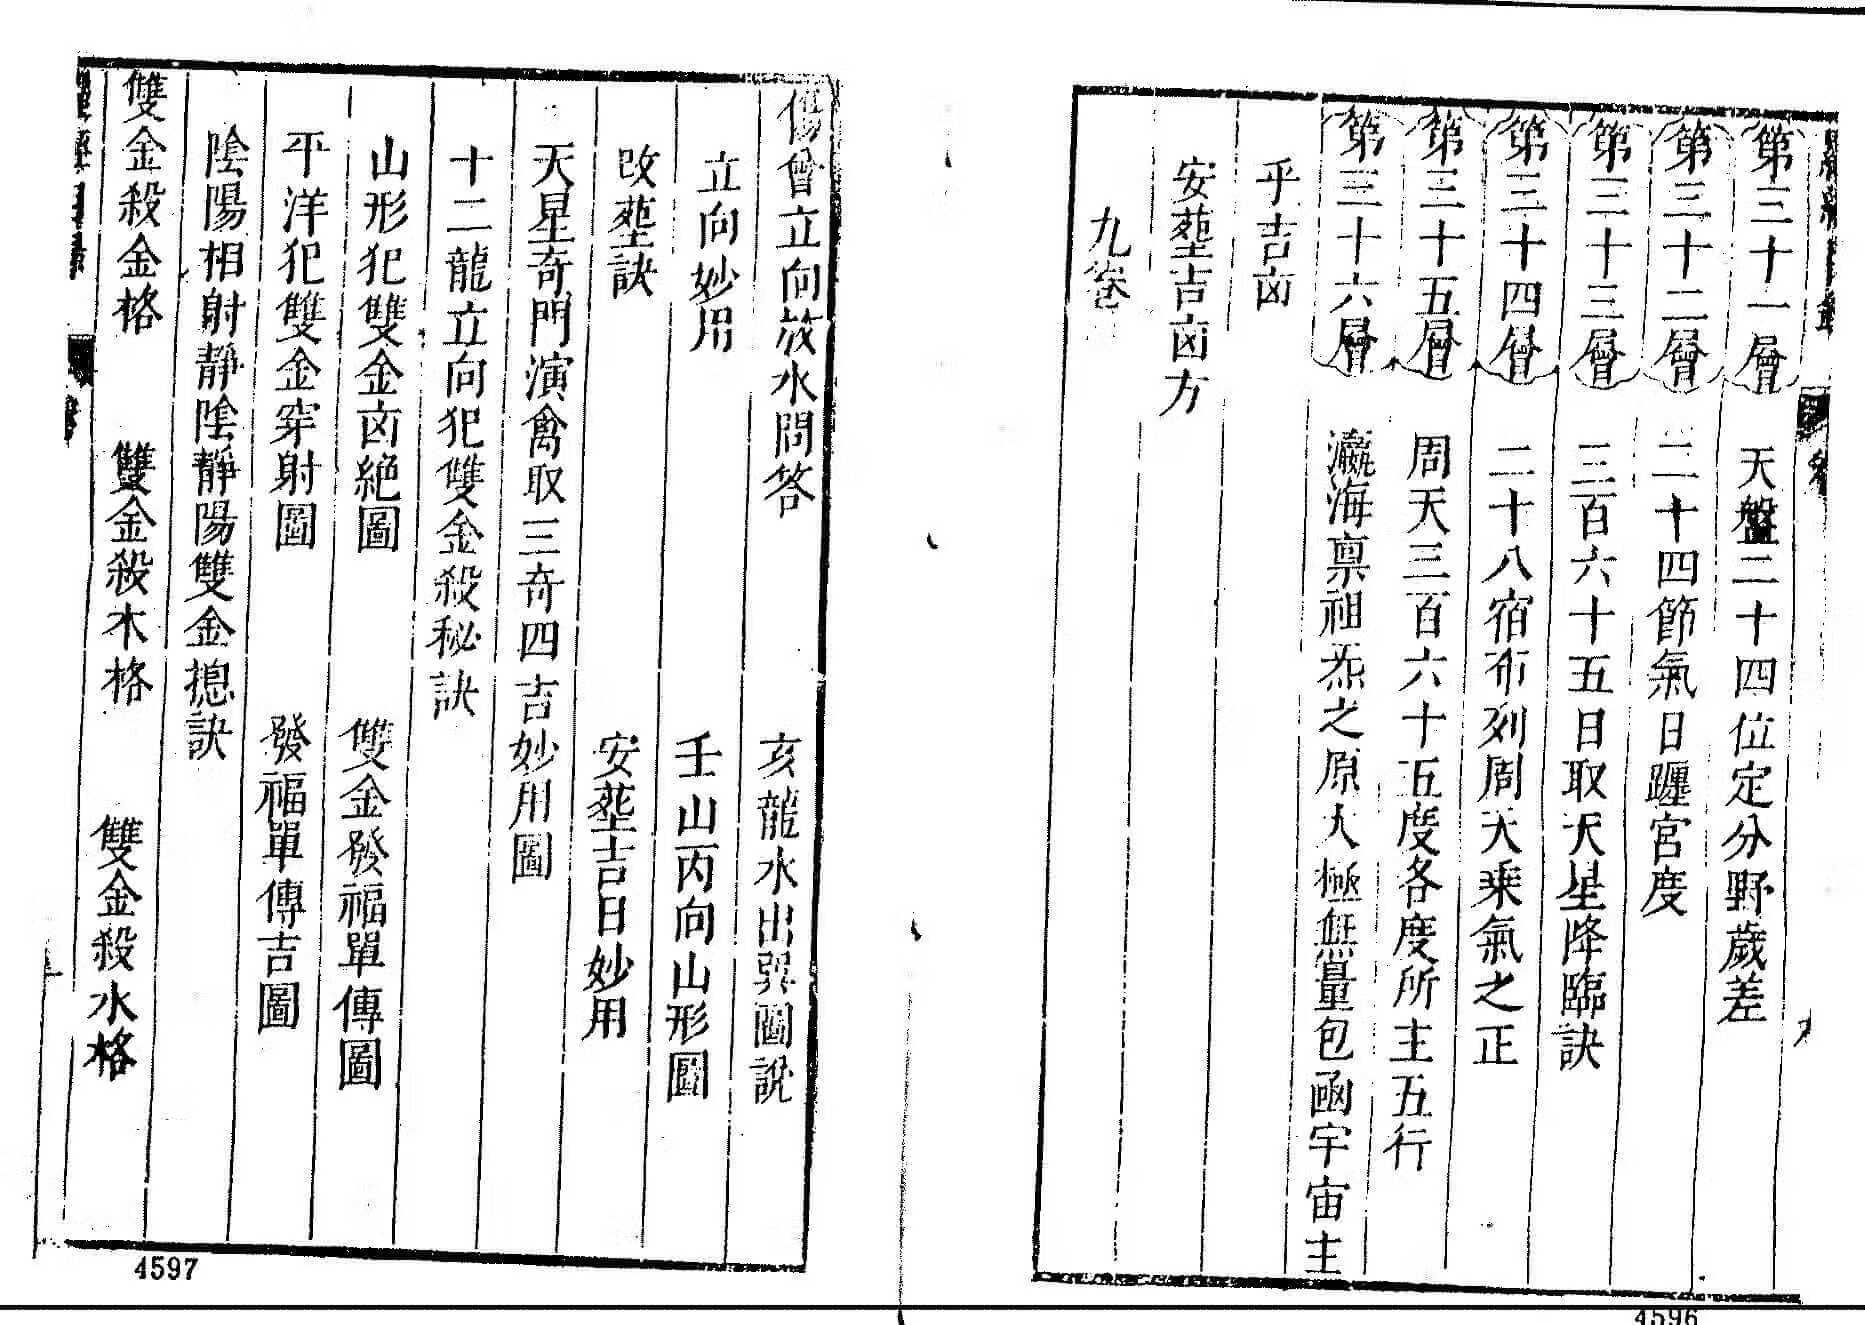 第三十一層　天盤二十四位定分野歲差
第三十二層　二十四節氣日躔宮度
第三十三層　三百六十五日取天星降臨訣
第三十四層　二十八宿布列周天乘氣之正
第三十五層　周天三百六十五度各度所主五行
第三十六層　瀛海禀祖炁之原大極無量包函宇宙主
乎吉凶
安塟吉凶方
九卷
4596
傷曾立向放水問答　亥龍水出巽圖說
立向妙用　壬山丙向山形圖
改塟訣　安塟吉日妙用
天星奇門演禽取三奇四吉妙用圖
十二龍立向犯雙金殺秘訣
山形犯雙金凶絕圖　雙金發福單傳圖
平洋犯雙金穿射圖　發福單傳吉圖
陰陽相射靜陰靜陽雙金摠訣
雙金殺金格　雙金殺木格　雙金殺水格
4597